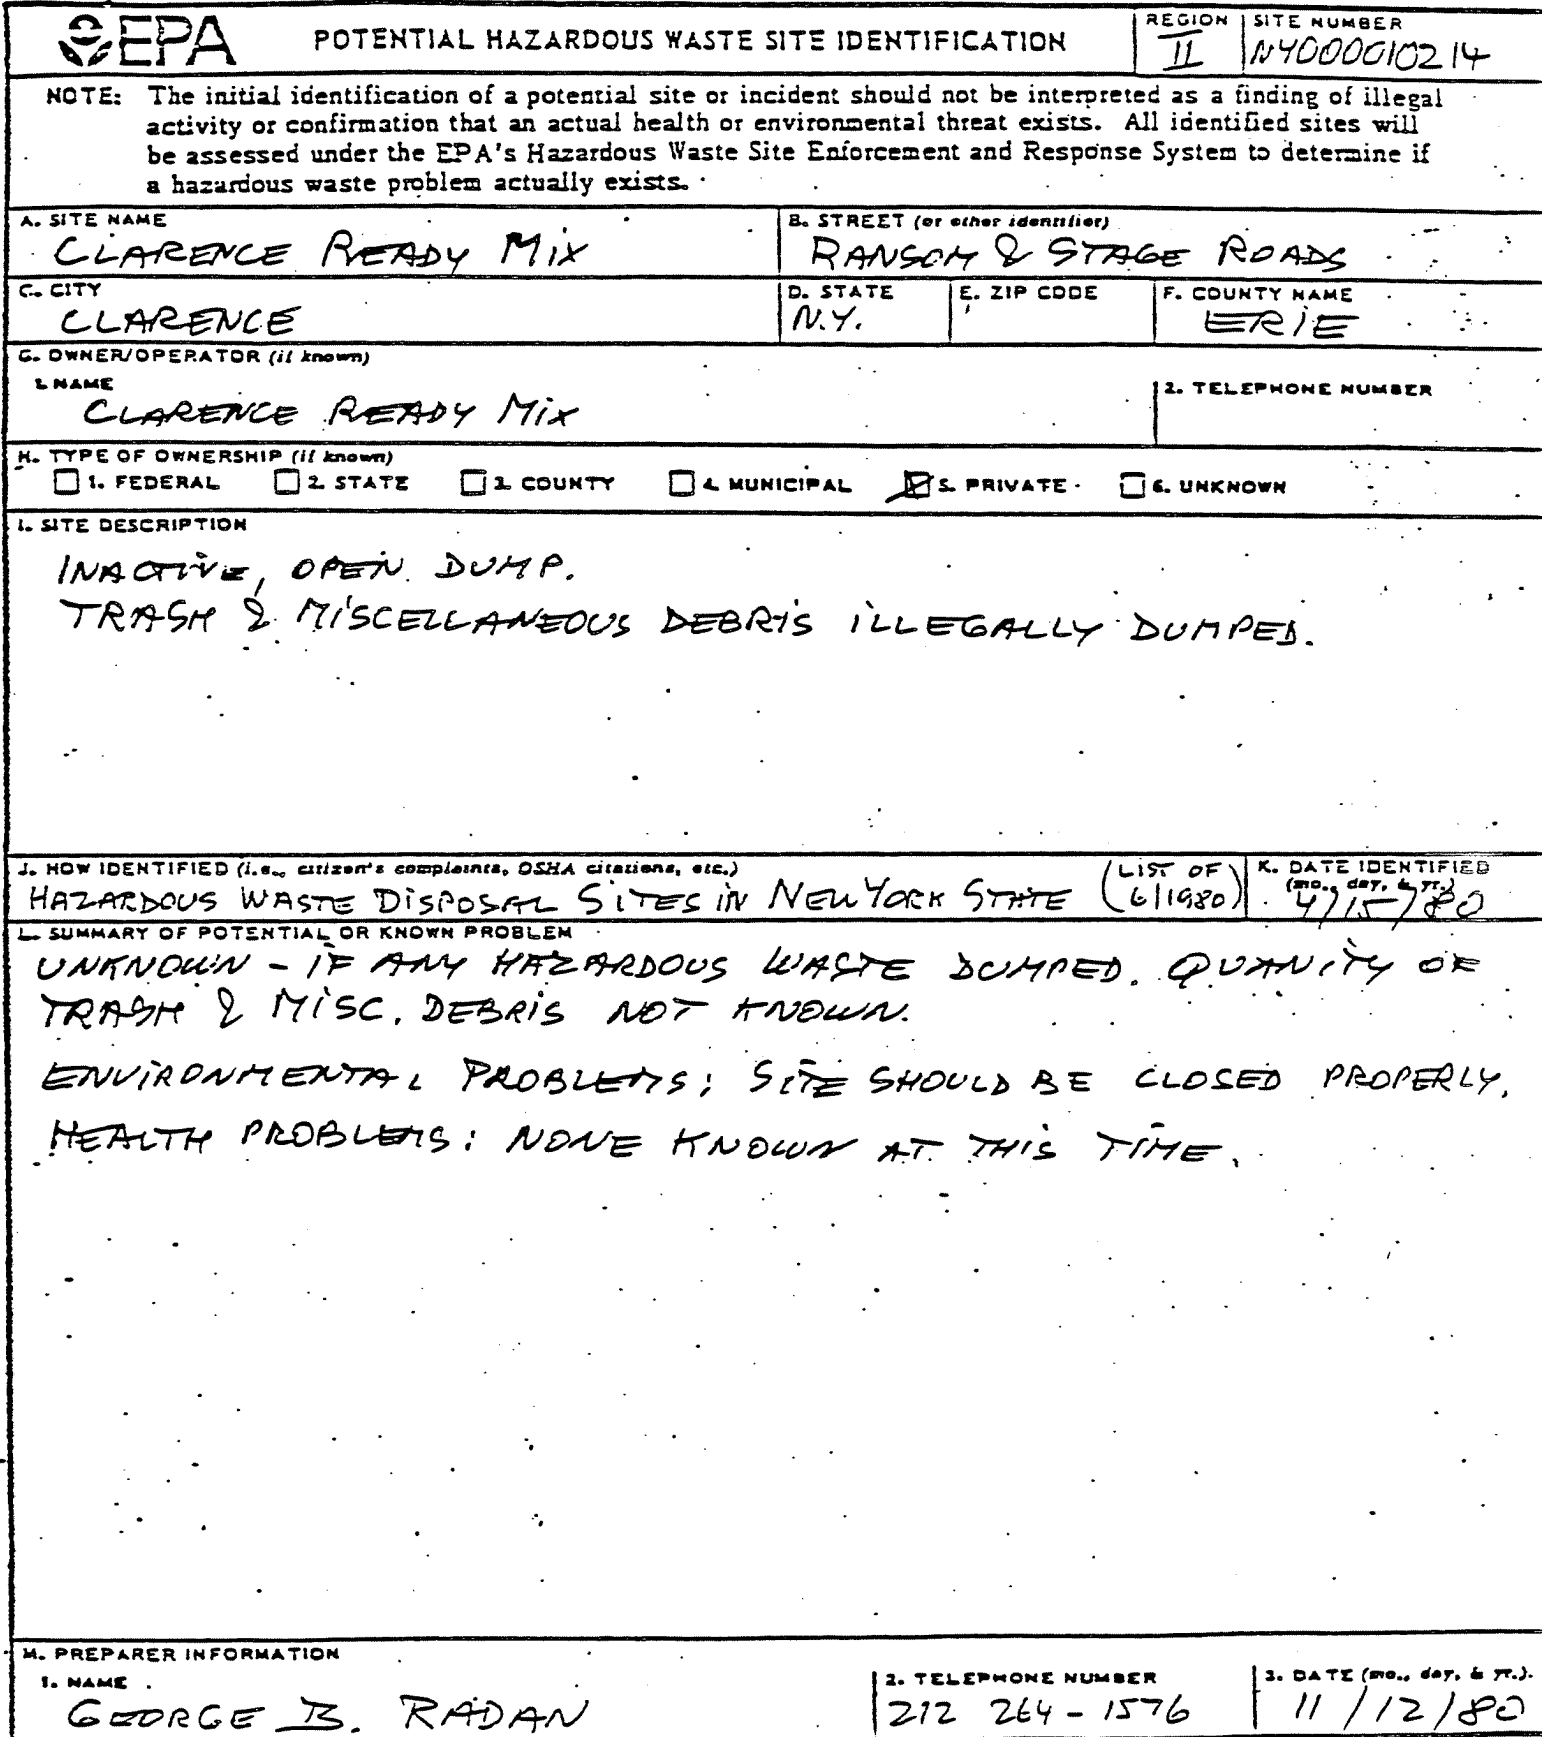 EPA POTENTIAL HAZARDOUS WASTE SITE IDENTIFICATION
REGION
II
SITE NUMBER
NY0000010214
NOTE: The initial identification of a potential site or incident should not be interpreted as a finding of illegal
activity or confirmation that an actual health or environmental threat exists. All identified sites will
be assessed under the EPA's Hazardous Waste Site Enforcement and Response System to determine if
a hazardous waste problem actually exists.
A. SITE NAME
CLARENCE READY MiX
B. STREET (or other identifier)
RANSOM & STAGE ROADS
C. CITY
CLARENCE
D. STATE
N.Y.
E. ZIP CODE
F. COUNTY NAME
ERIE
G. OWNER/OPERATOR (if known)
1. NAME
CLARENCE READY MiX
2. TELEPHONE NUMBER
H. TYPE OF OWNERSHIP (if known)
1. FEDERAL 2. STATE 3. COUNTY 4. MUNICIPAL 5. PRIVATE 6. UNKNOWN
I. SITE DESCRIPTION
INACTIVE, OPEN DUMP.
TRASH & MISCELLANEOUS DEBRIS ILLEGALLY DUMPED.
J. HOW IDENTIFIED (i.e., citizen's complaints, OSHA citations, etc.)
HAZARDOUS WASTE DISPOSAL SITES IN NEW YORK STATE (LIST OF
6/1980)
K. DATE IDENTIFIED
(mo., day, & yr.)
4/15/80
L. SUMMARY OF POTENTIAL OR KNOWN PROBLEM
UNKNOWN - IF ANY HAZARDOUS WASTE DUMPED. QUANITY OF
TRASH & MISC. DEBRIS NOT KNOWN.
ENVIRONMENTAL PROBLEMS: SITE SHOULD BE CLOSED PROPERLY.
HEALTH PROBLEMS: NONE KNOWN AT THIS TIME.
M. PREPARER INFORMATION
1. NAME
GEORGE B. RADAN
2. TELEPHONE NUMBER
212 264-1576
3. DATE (mo., day, & yr.)
11/12/80